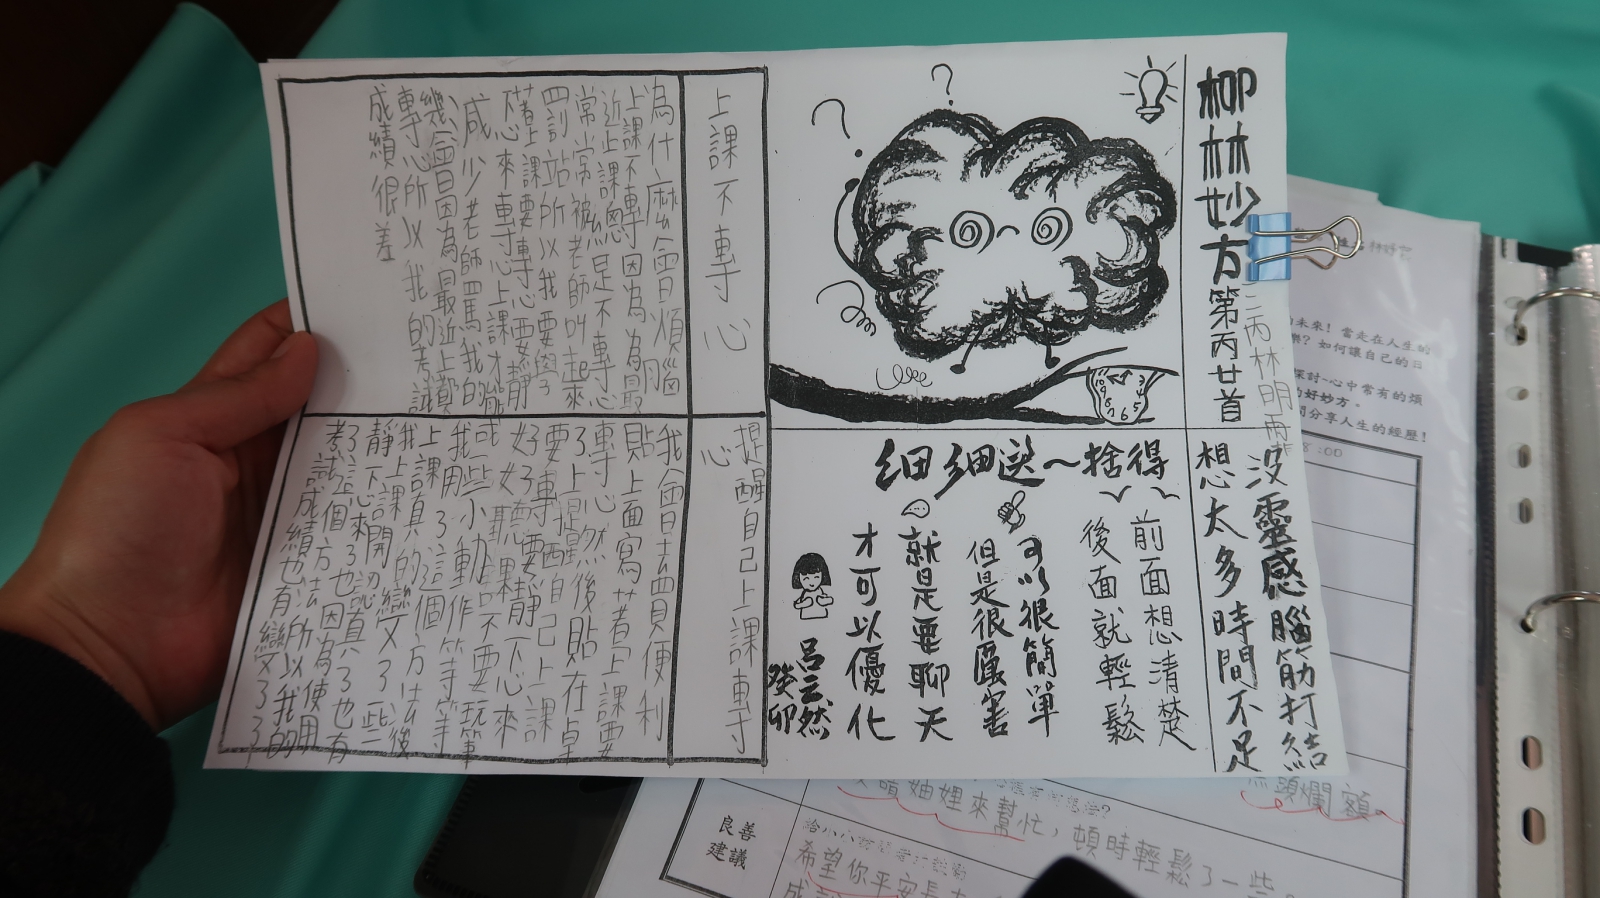 柳林妙方第丙廿首
三丙林明雨
沒靈感腦筋打結
想太多時間不足
細細選~捨得
前面想清楚
後面就輕鬆
可以很簡單
但是很厲害
就是要聊天
才可以優化
呂云然
癸卯
上課不專心
為什麼會煩腦
上課不專因為為最
近上課總是不專心
常常被老師叫起來
罰站所以我要學
著上課要專心要靜
下心來專心上課才能
減少老師罵我的
幾會因為最近上課
專心所以我的考試
成績很差
提醒自己上課專
心
我會去買便利
貼上面寫著上課要
專心然後貼在桌
了上提醒自己上課
要專
好好聽課靜下心來
或一些小動作等等
我用了這個方法後
上課真的變文了一些
我上課開
靜下心來
了這個方法所以我的
考試成績也有變文了
的未來!當走在人生的
樂?如何讓自己的日
探討~心中常有的煩
的好妙方。
同分享人生的經歷!
8:00
焦頭爛額。
來幫忙,頓時輕鬆了一些。
良善
建議
希望你平安長